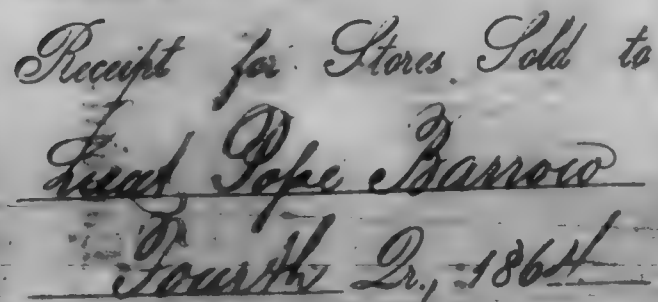 Receipt for Stores Sold to
Lieut Pope Barrow
Fourth Qr., 1864